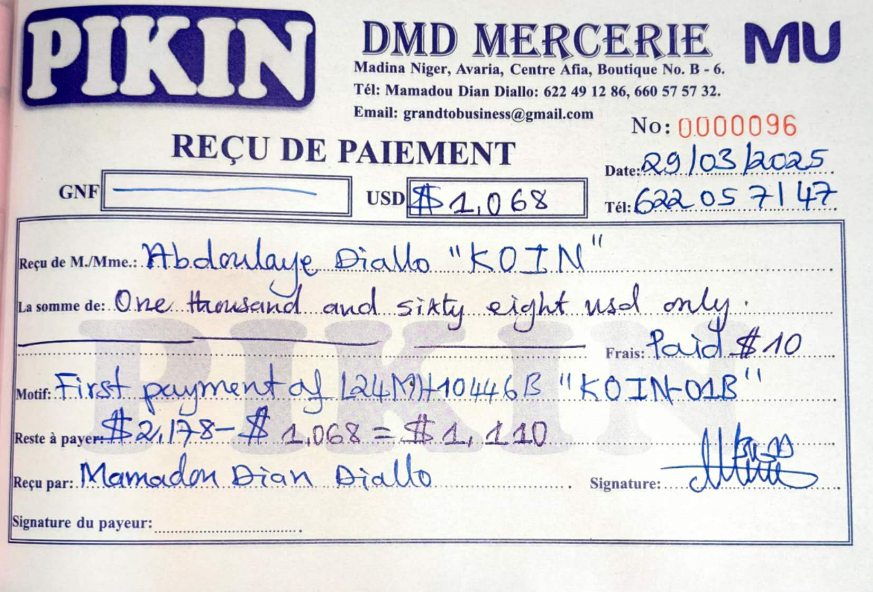 PIKIN
DMD MERCERIE MU
Madina Niger, Avaria, Centre Afia, Boutique No. B - 6.
Tél: Mamadou Dian Diallo: 622 49 12 86, 660 57 57 32.
Email: grandtobusiness@gmail.com
No: 0000096
REÇU DE PAIEMENT
Date: 29/03/2025
GNF USD $ 1,068
Tél: 622 05 71 47
Reçu de M./Mme.: Abdoulaye Diallo "KOIN"
La somme de: One thousand and sixty eight usd only.
Frais: Paid $10
Motif: First payment of L24MH10446B "KOIN-01B"
Reste à payer: $2,178-$ 1,068 = $1,110
Reçu par: Mamadou Dian Diallo Signature:
Signature du payeur:
PIKIN